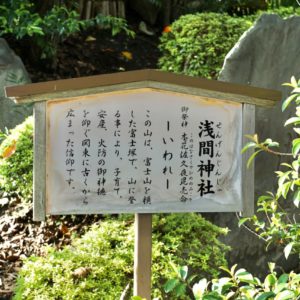 せんげんじんじゃ
浅間神社
御祭神 木花佐久夜毘売命
このはなさくやひめのみこと
ーいわれ
この山は、富士山を模
した富士塚で、山に登
る事により、子育て
安産、火防の御神徳
を仰ぐ関東に古くから
広まった信仰です。